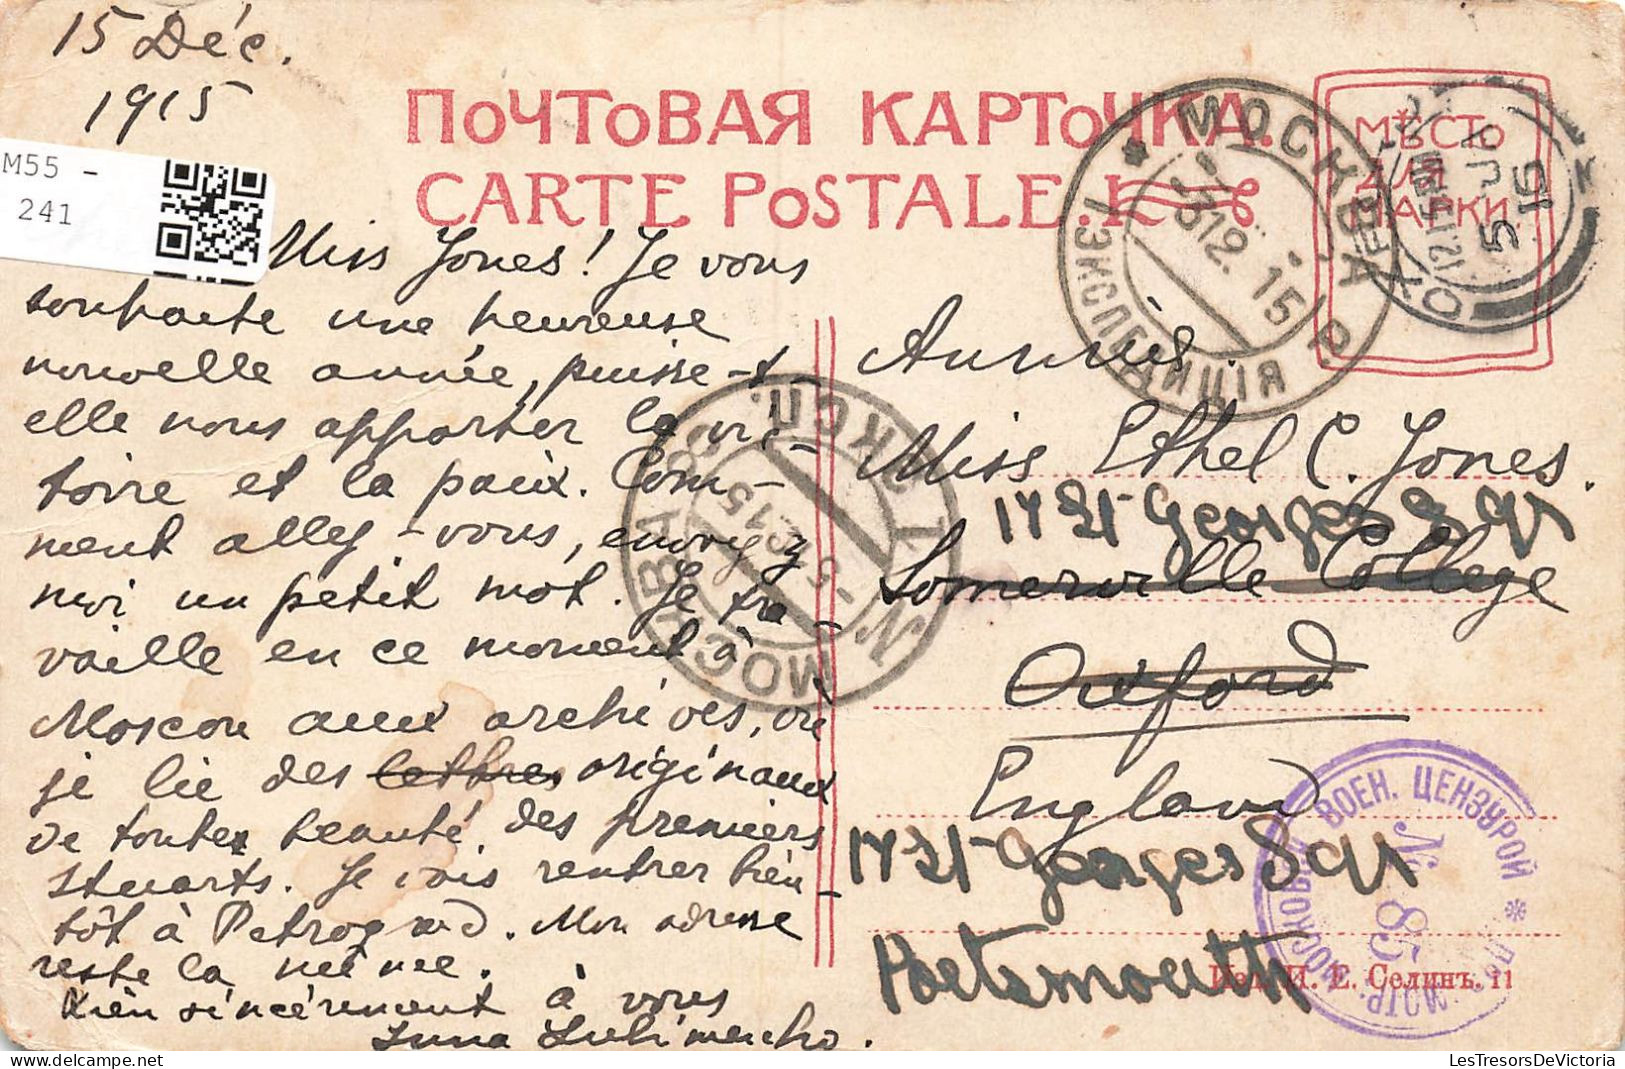 15 Déc.
1915
M55 -
241
ПОЧТОВАЯ КАРТОЧКА.
CARTE POSTALE.
МѢСТО
ДЛЯ
МАРКИ.
МОСКВА
7 ЭКСПЕДИЦІЯ
312.15
5 JA
15
Miss Jones! Je vous
souhaite une heureuse
nouvelle année, puisse-t-
elle nous apporter la vic-
toire et la paix. Com-
ment allez-vous, envoyez
moi un petit mot. Je tra-
vaille en ce moment à
Moscou aux archives, où
je lie des lettres originaux
de toute beauté des premiers
Stuarts. Je vais rentrer bien-
tôt à Petrograd. Mon adresse
reste la même.
Bien sincèrement à vous
Inna Lubimenko.
МОСКВА
7 ЭКСП.
Miss Ethel C. Jones.
17 St Georges Sqr
Somerville College
Oxford
England
17 St Georges Sqr
Portsmouth
МОСКОВСК. ВОЕН. ЦЕНЗУРОЙ
№ 85
Изд. И. Е. Селинъ. 11
LesTresorsDeVictoria